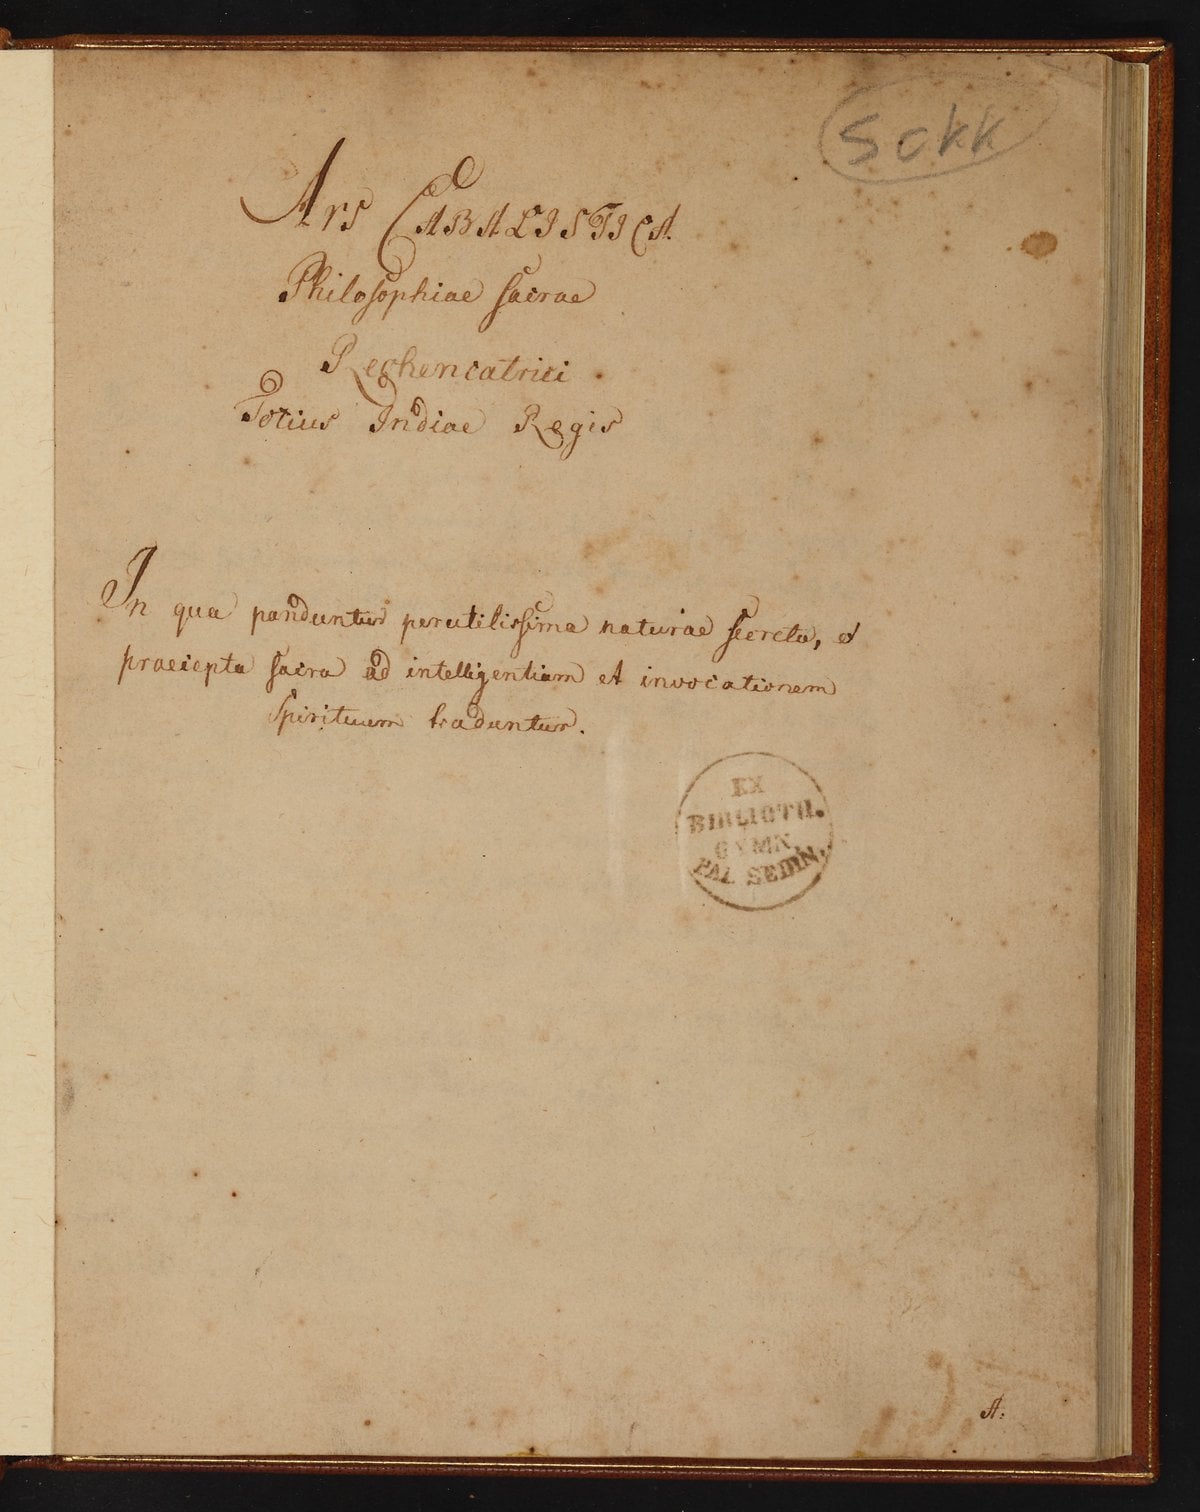 Sckk
Ars CABALISTICA.
Philosophiae sacrae
Rechencatrici
Totius Indiae Regis
In qua panduntur perutilissima naturae secreta, et
praecepta sacra ad intelligentiam et invocationem
Spirituum traduntur.
EX
BIBLIOTH.
GYMN.
PAL SEDIN.
A: